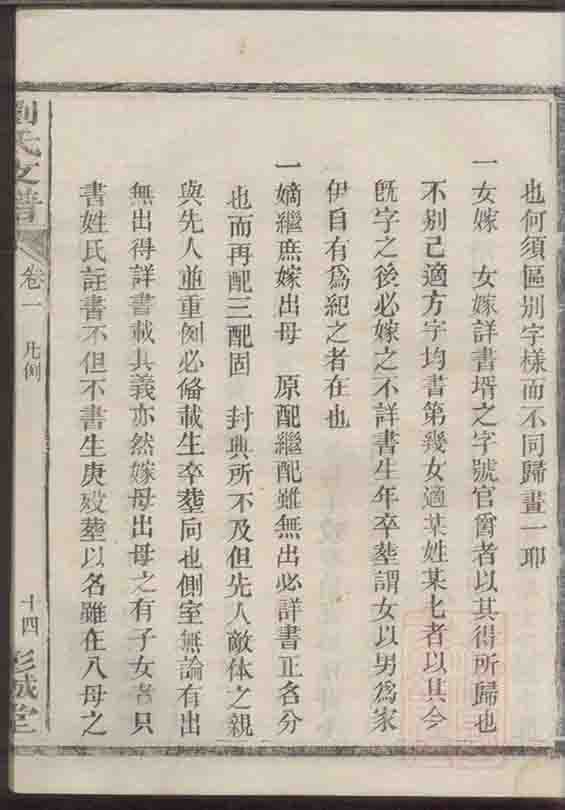 也何須區别字樣而不同歸畫一耶
一女嫁 女嫁詳書壻之字號官賫者以其得所歸也
不别己適方字均書第幾女適某姓某七者以其今
旣字之後必嫁之不詳書生年卒塟謂女以男爲家
伊自有爲紀之者在也
一嫡繼庶嫁出母 原配繼配雖無出必詳書正名分
也而再配三配固 封典所不及但先人敵体之親
與先人並重例必俻載生卒塟向也側室無論有出
無出得詳書載其義亦然嫁母出母之有子女者只
書姓氏註書不但不書生庚歿塟以名雖在八母之
劉氏支譜
卷一 凡例
十四 彭城堂